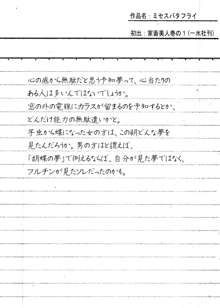 作品名：ミセスバタフライ
初出：家畜美人巻の1（一水社刊）
心の底から無駄だと思う予知夢って、心当たりの
ある人は多いんではないでしょうか。
窓の外の電線にカラスが留まるのを予知するとか、
どんだけ能力の無駄遣いかと。
芋虫から蝶になった女の方は、この頃どんな夢を
見たんだろうか。男の方はと謂えば、
「胡蝶の夢」で例えるならば、自分が見た夢ではなく、
フルチンが見たソレだったのかも。